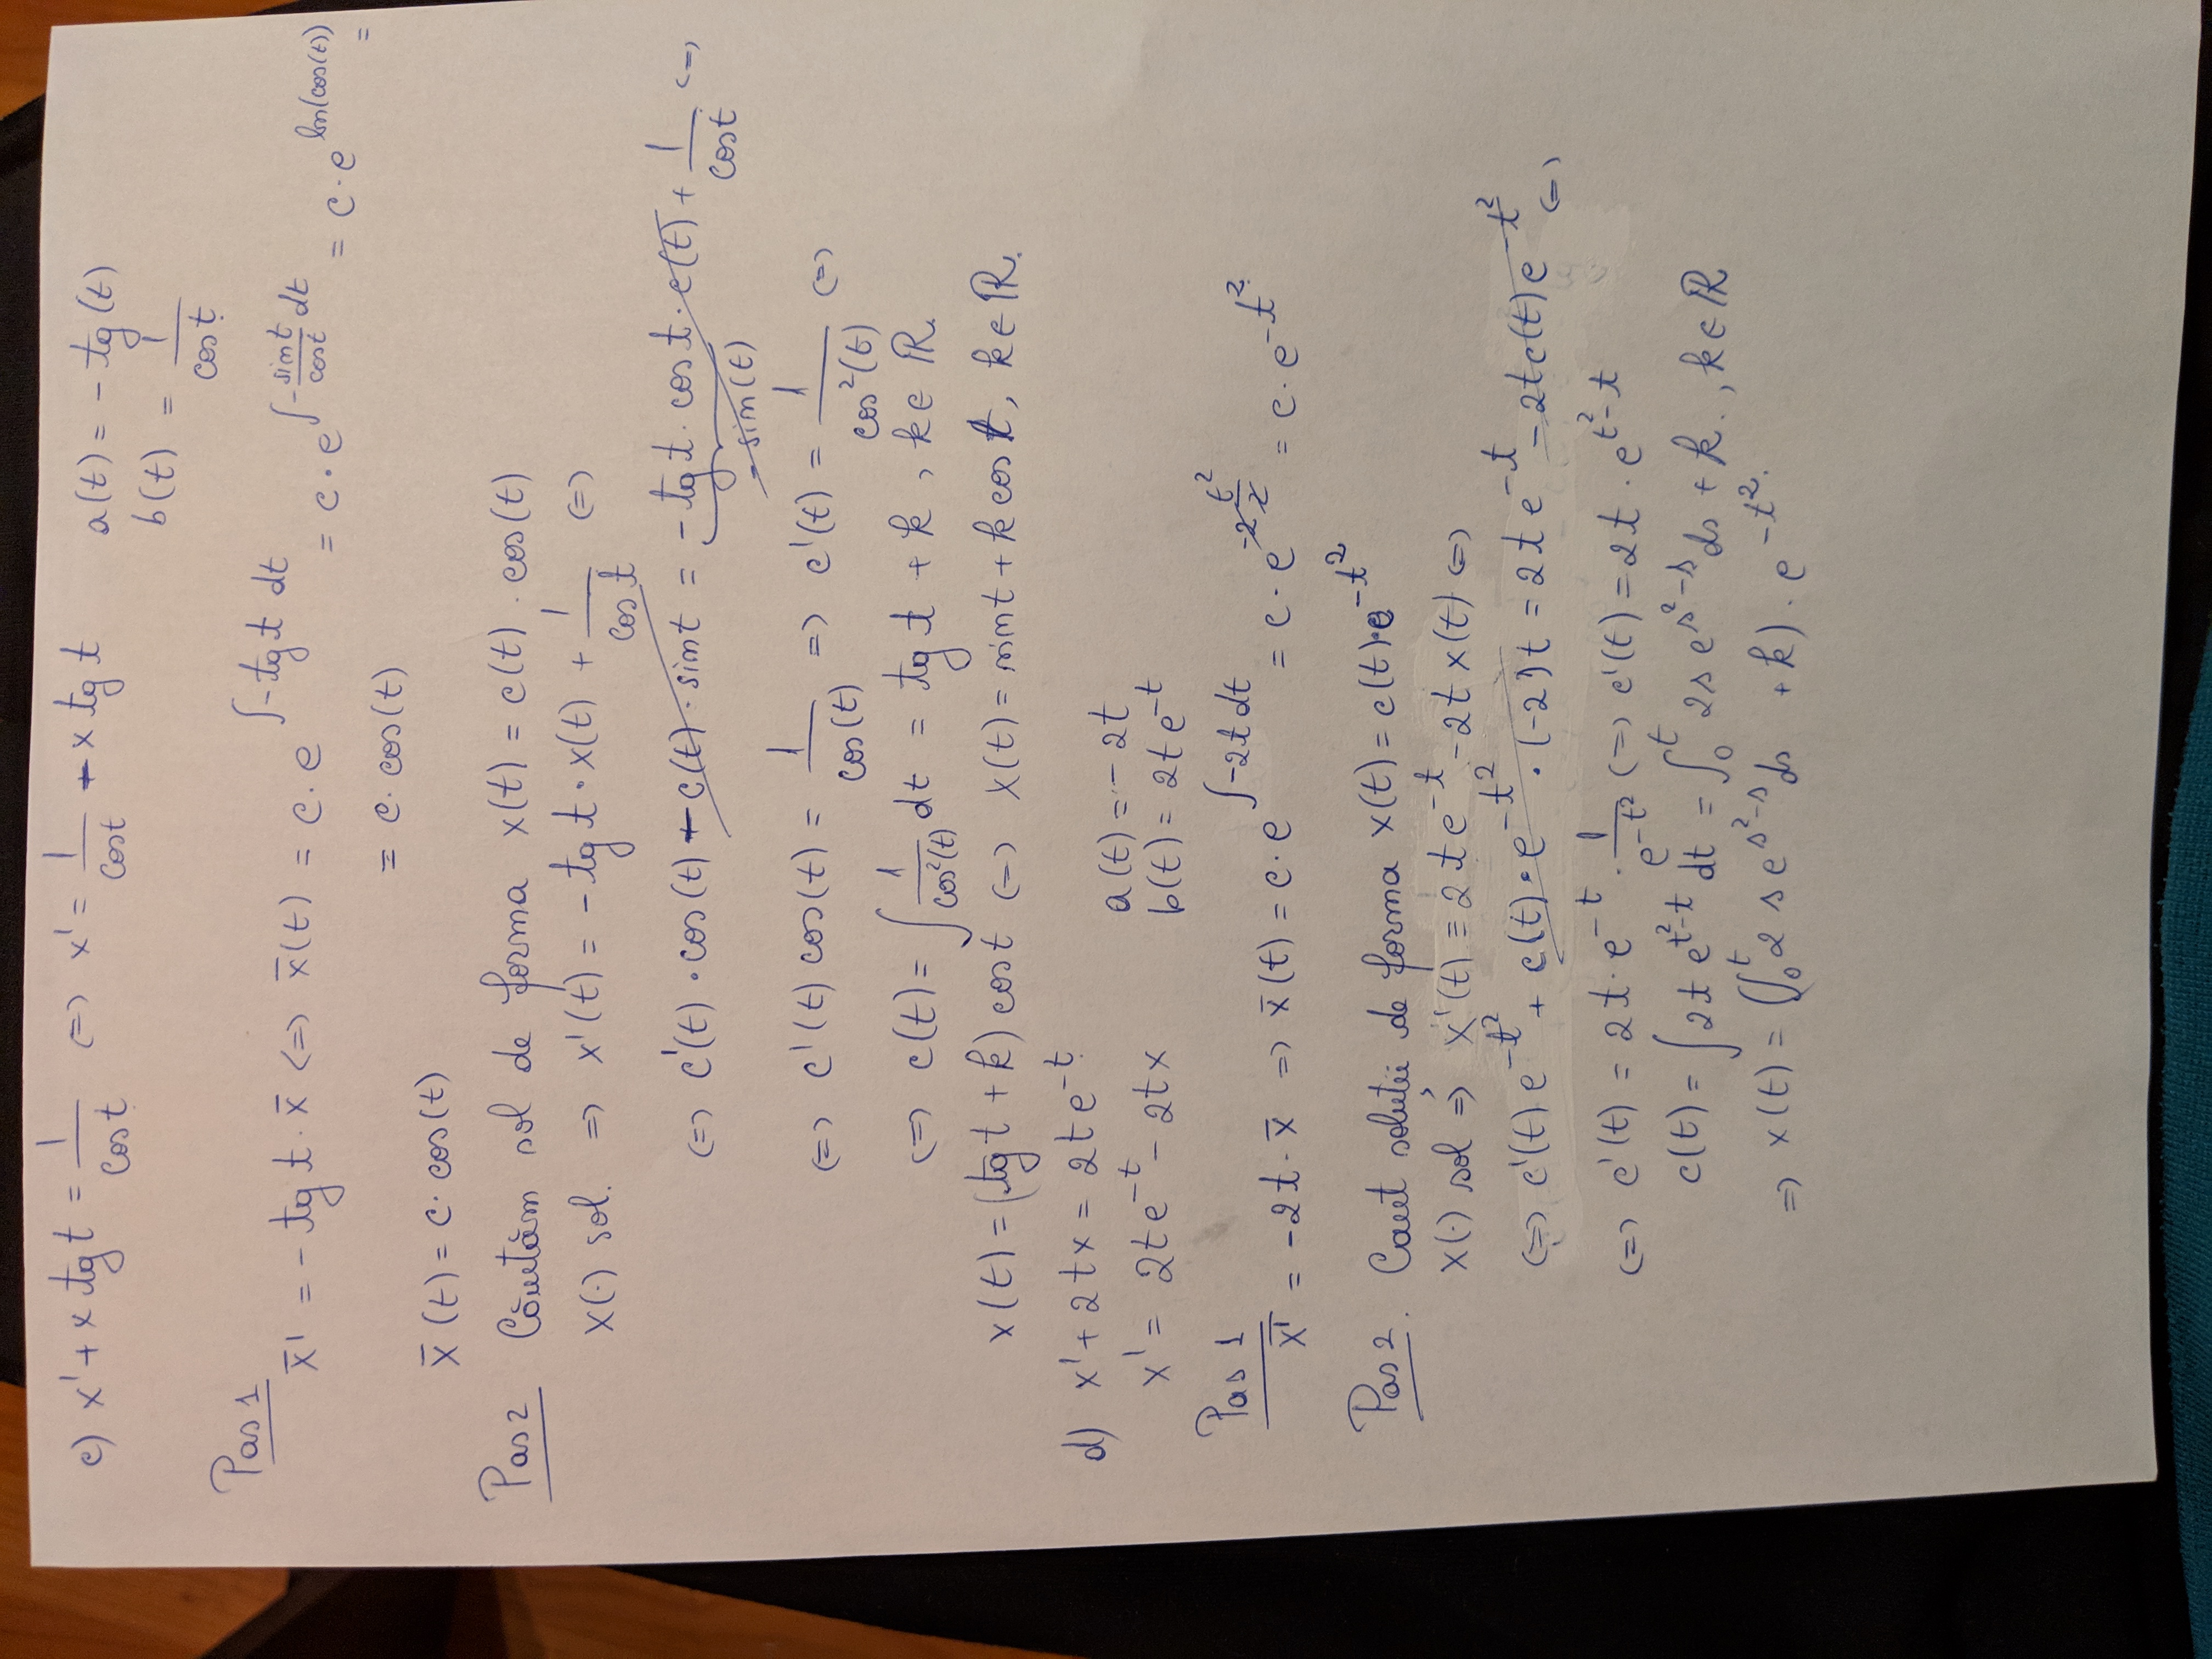 c) x' + x tg t = 1/cos t <=> x' = 1/cos t - x tg t   a(t) = - tg(t)
b(t) = 1/cos t
Pas 1
x̄' = - tg t · x̄ <=> x̄(t) = c · e^(∫ - tg t dt) = c · e^(∫ - sin t/cos t dt) = c · e^(ln(cos(t))) =
= c · cos(t)
x̄(t) = c · cos(t)
Pas 2 Căutăm sol de forma x(t) = c(t) · cos(t)
x(·) sol. => x'(t) = - tg t · x(t) + 1/cos t <=>
<=> c'(t) · cos(t) - c(t) · sin t = - tg t · cos t · c(t) + 1/cos t <=>
- sin(t)
<=> c'(t) cos(t) = 1/cos(t) => c'(t) = 1/cos²(t) <=>
<=> c(t) = ∫ 1/cos²(t) dt = tg t + k , k ∈ ℝ.
x(t) = (tg t + k) cos t <=> x(t) = sin t + k cos t, k ∈ ℝ.
d) x' + 2tx = 2te^(-t)
x' = 2te^(-t) - 2tx   a(t) = - 2t
b(t) = 2te^(-t)
Pas 1
x̄' = -2t · x̄ => x̄(t) = c · e^(∫ -2t dt) = c · e^(-2 t²/2) = c · e^(-t²)
Pas 2. Caut soluții de forma x(t) = c(t) · e^(-t²)
x(·) sol => x'(t) = 2te^(-t) - 2t x(t) <=>
<=> c'(t) e^(-t²) + c(t) · e^(-t²) · (-2)t = 2te^(-t) - 2tc(t)e^(-t²) <=>
<=> c'(t) = 2t · e^(-t) · 1/e^(-t²) <=> c'(t) = 2t · e^(t²-t)
c(t) = ∫ 2t e^(t²-t) dt = ∫₀ᵗ 2s e^(s²-s) ds + k. , k ∈ ℝ
=> x(t) = (∫₀ᵗ 2s e^(s²-s) ds + k) · e^(-t²).